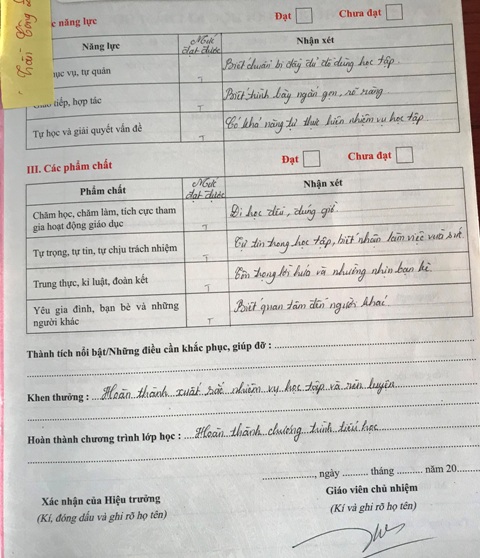 năng lực Đạt Chưa đạt
Năng lực Mức đạt được Nhận xét
phục vụ, tự quản T Biết chuẩn bị đầy đủ đồ dùng học tập
tiếp, hợp tác T Biết trình bày ngắn gọn, rõ ràng
Tự học và giải quyết vấn đề T Có khả năng tự thực hiện nhiệm vụ học tập
III. Các phẩm chất Đạt Chưa đạt
Phẩm chất Mức đạt được Nhận xét
Chăm học, chăm làm, tích cực tham
gia hoạt động giáo dục T Đi học đều, đúng giờ
Tự trọng, tự tin, tự chịu trách nhiệm T Tự tin trong học tập, biết nhận làm việc vừa sức
Trung thực, kỉ luật, đoàn kết T Tôn trọng lời hứa và nhường nhịn bạn bè
Yêu gia đình, bạn bè và những
người khác T Biết quan tâm đến người khác
Thành tích nổi bật/Những điều cần khắc phục, giúp đỡ :
Khen thưởng : Hoàn thành xuất sắc nhiệm vụ học tập và rèn luyện
Hoàn thành chương trình lớp học : Hoàn thành chương trình tiểu học
, ngày ......... tháng ......... năm 20......
Xác nhận của Hiệu trưởng Giáo viên chủ nhiệm
(Kí, đóng dấu và ghi rõ họ tên) (Kí và ghi rõ họ tên)